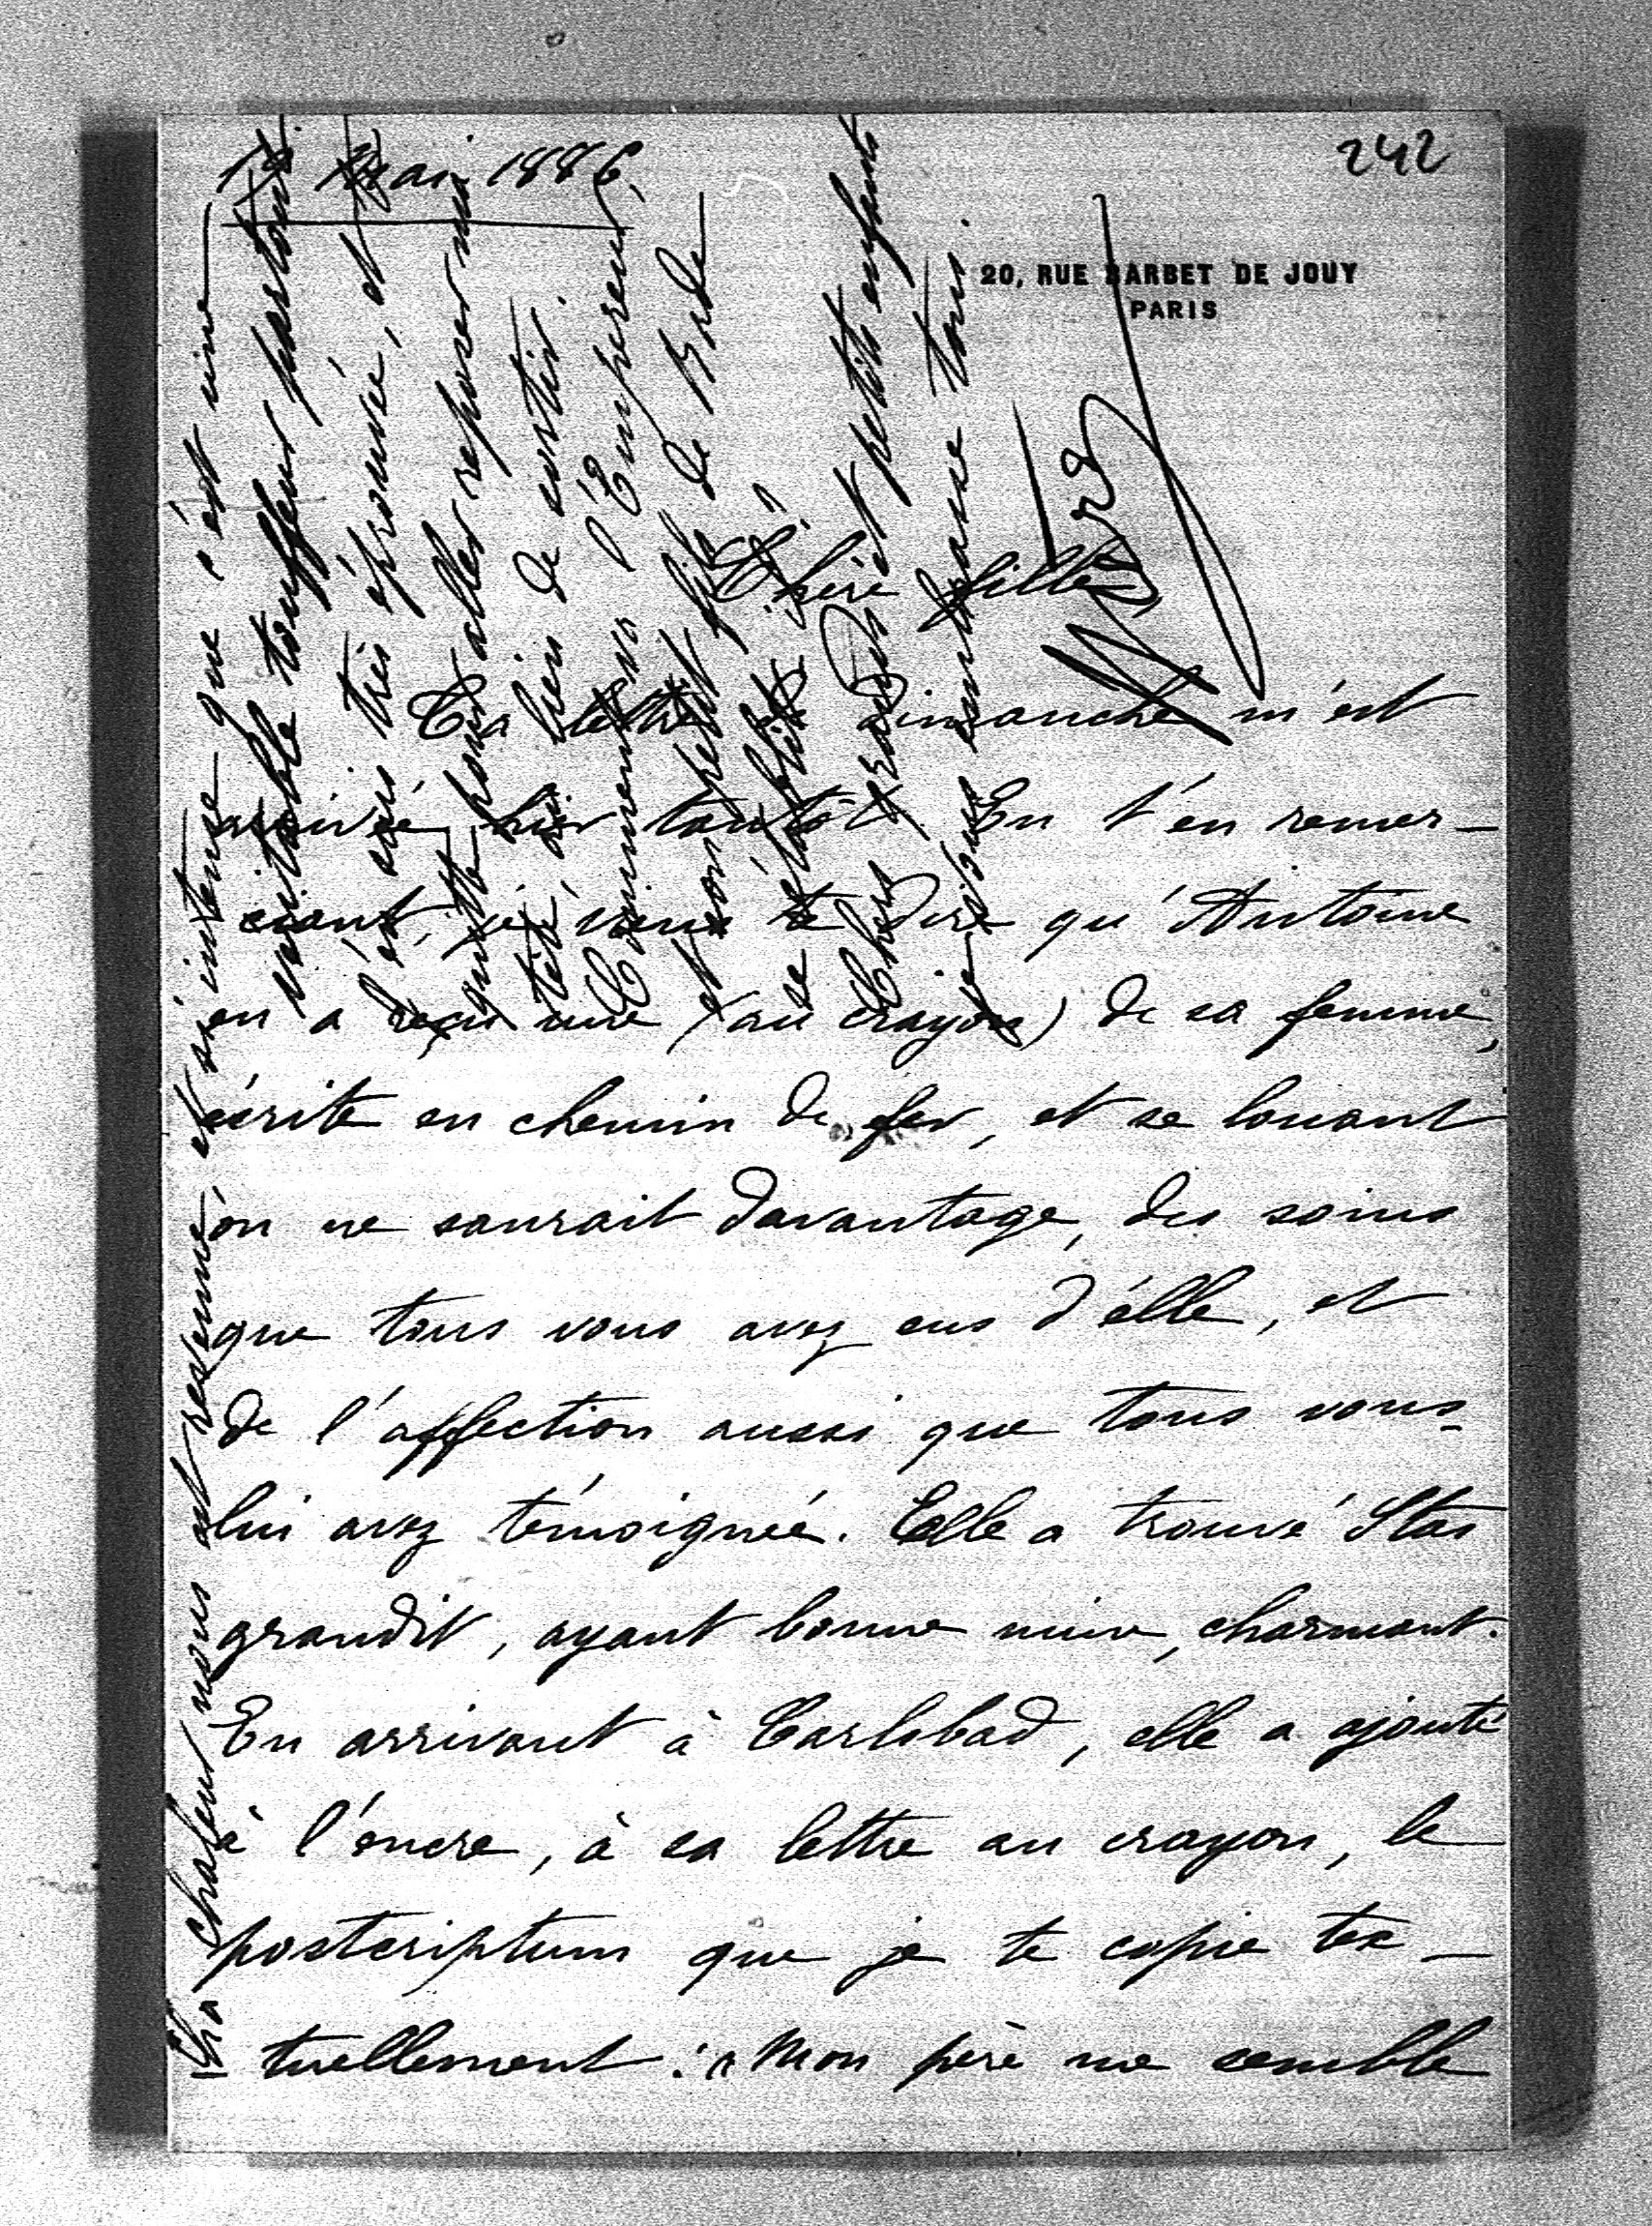 242
Mai 1886
20, RUE BARBET DE JOUY
PARIS
Chère fille,
Ta lettre de dimanche m'est
arrivée hier tantôt. En t'en remer-
ciant, je viens te dire qu'Antoine
en a reçu une (au crayon) de sa femme,
écrite en chemin de fer, et se louant
on ne saurait davantage, des soins
que tous vous avez eus d'elle, et
de l'affection aussi que tous vous
lui avez témoignée. Elle a trouvé Stas
grandit, ayant bonne mine, charmant.
En arrivant à Carlsbad, elle a ajouté
à l'encre, à sa lettre au crayon, le
postcriptum que je te copie tex-
tuellement : « Mon père me semble
La chaleur nous est revenue, et si intense que c'est une
véritable touffeur partout.
J'en suis très éprouvée, et
quitte pour aller reposer ma
tête au lieu de sortir.
Comment va l'Empereur,
et son petit fils de Bade
se rétablit-il ?
Chers grands et petits enfants
je vous embrasse tous.